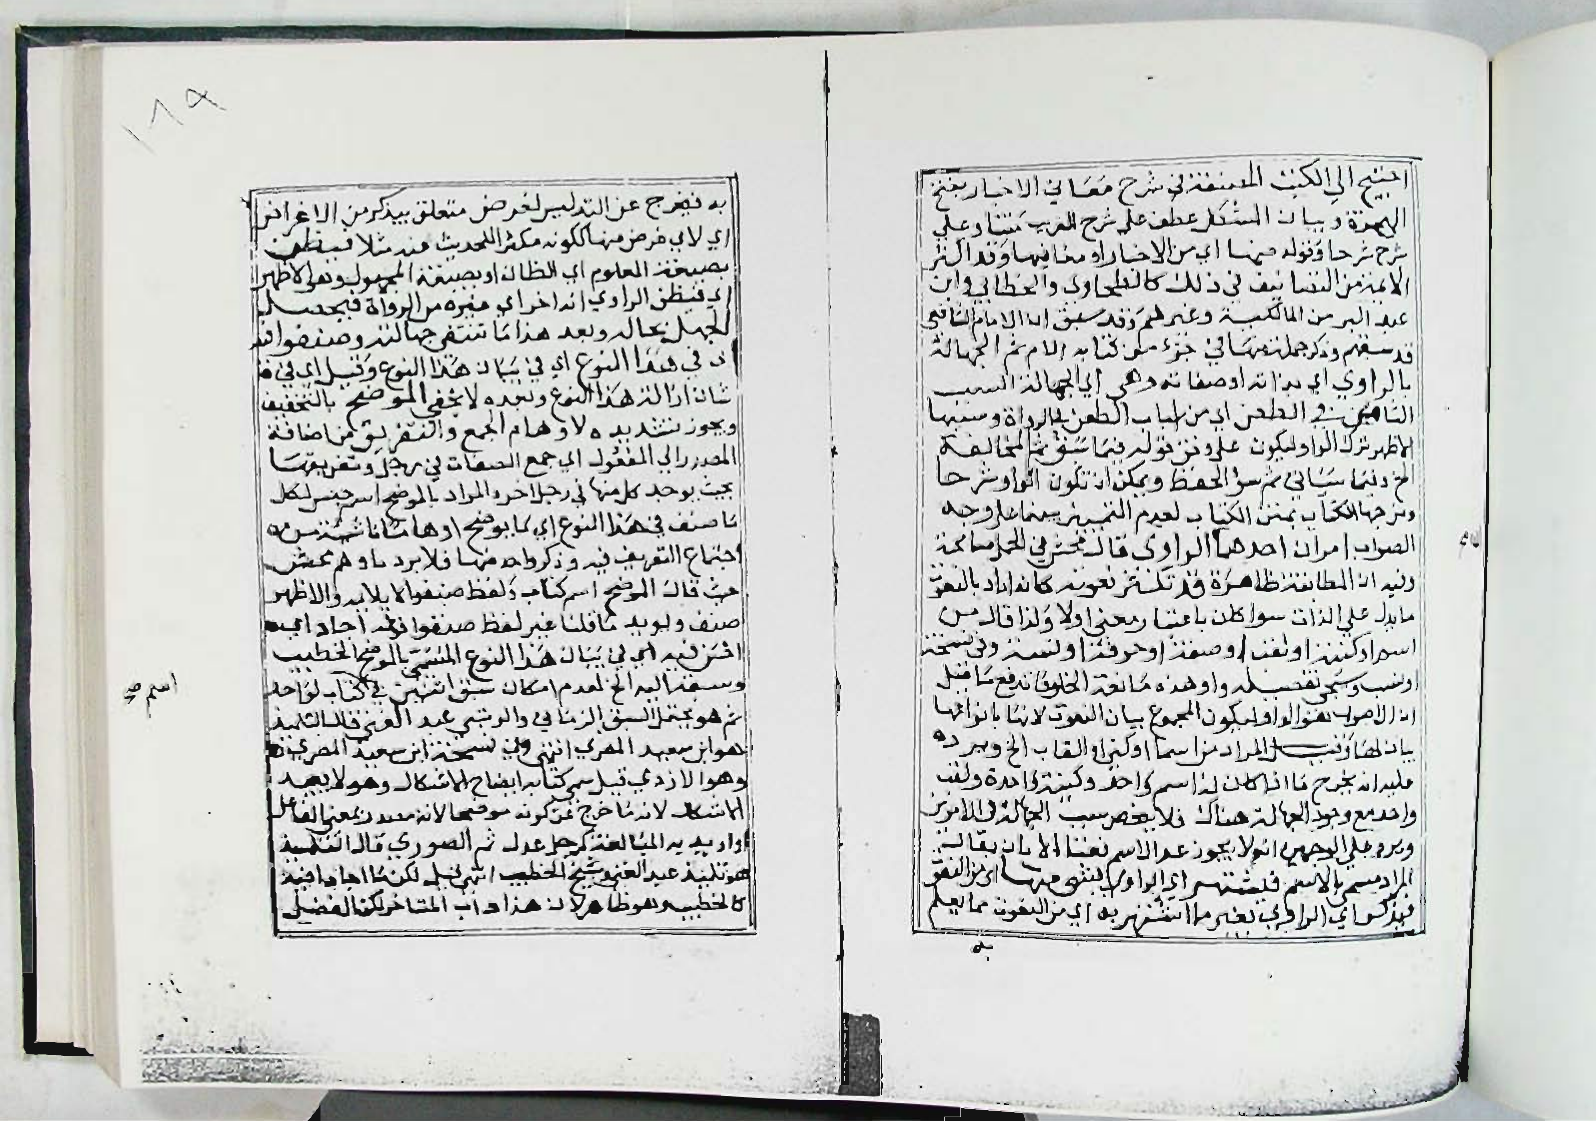 احتيج الي الكتب المصنفة في شرح معاني الاخبار بفتح
الهمزة وبيان المشكل عطف علي شرح الغريب علي
شرح شرحا وقوله منها اي من الاخبار او معانيها وقد اكثر
الائمة من التصانيف في ذلك كالطحاوي والخطابي وابن
عبد البر من المالكية وغيرهم وقد سبق ان الامام الشافعي
قد سبقهم وذكر جملة منها في جزء من كتابه الام ثم الجهالة
بالراوي اي بذاته او صفاته وهي اي الجهالة السبب
الثامن في الطعن اي من اسباب الطعن في الرواة وسببها
الاظهر ترك الواو ليكون علي وفق قوله فيما سبق ثم المخالفة
الخ وفيما سياتي ثم سوء الحفظ ويمكن ان تكون الواو شرحا
الكتاب بمتن الكتاب لعدم التمييز بينهما علي وجه
الصواب امران احدهما ان الراوي قال محشي في الحمل مسامحة
وفيه ان المطابقة ظاهرة قد تكثر نعوته كانه اراد بالنعوت
ما يدل علي الذات سوا كان باعتبار معني اولا ولذا قال من
اسم او كنية او لقب او صفة او حرفة او نسبة وفي نسخة
او نسب وسيجي تفصيله واو هذه مانعة الخلو فاندفع ما قيل
ان الاصوب هنا الواو ليكون المجموع بيان النعوت لانها بانواعها
بيان لها وقيل المراد من اسما او كني او القاب الخ ويرد
عليه انه يخرج ما اذا كان له اسم واحد وكنية واحدة ولقب
واحد مع وجود الجهالة هناك فلا ينحصر سبب الجهالة في الامرين
ويرد علي الوجهين انه لا يجوز عد الاسم نعتا الا بان يقال
المراد مسمي بالاسم فيشتهر اي الراوي بشي منها اي من النعوت
فيذكر اي الراوي بغير ما اشتهر به اي من النعوت مما يعلم
به
١٨٩
به فيخرج عن التدليس لغرض متعلق بيذكر من الاغراض
اي لاي غرض منها ككونه مكثر التحديث عنه مثلا فيظن
بصيغة المعلوم اي الظان او بصيغة المجهول وهو الاظهر
اي فيظن الراوي انه اخر اي غيره من الرواة فيحصل
الجهل بحاله وبعد هذا ما تنتفي جهالته وصنفوا فيه
اي في هذا النوع اي في بيان هذا النوع وقيل اي في
شان ازالة هذا النوع وبعده لا يخفي الموضح بالتخفيف
ويجوز تشديده لاوهام الجمع والتفريق من اضافة
المصدر الي المفعول اي جمع الصفات في رجل وتفريقها
بحيث يوجد كل منها في رجل اخر والمراد بالموضح اسم جنس لكل
ما صنف في هذا النوع اي لما يوضح اوهاما ناشئة من
اجتماع التعريف فيه وذكر واحد منها فلا يرد ما وهم محش
حيث قال الموضح اسم كتاب ولفظ صنفوا لا يلايمه والاظهر
صنف ويويد ما قلنا غير لفظ صنفوا قوله اجاد اي
احسن فيه اي في بيان هذا النوع المسمي بالموضح الخطيب
وسبقه اليه الخ لعدم امكان سبق اثنين في كتاب لواحد
ثم هو يحتمل السبق الزماني والرتبي عبد الغني قال التلميذ
هو ابن سعيد المصري انتهي وفي نسخة ابن سعيد المصري
وهو الازدي قيل سمي كتابه ايضاح الاشكال وهو لا يبعد
الاشكال لانه ما خرج عن كونه موضحا لانه مصدر بمعني الفاعل
او اريد به المبالغة كرجل عدل ثم الصوري قال التلميذ
هو تلميذ عبد الغني وشيخ الخطيب انتهي قيل لكن ما اجاد فيه
كالخطيب وهو ظاهر لان هذا داب المتاخر لكن الفضل